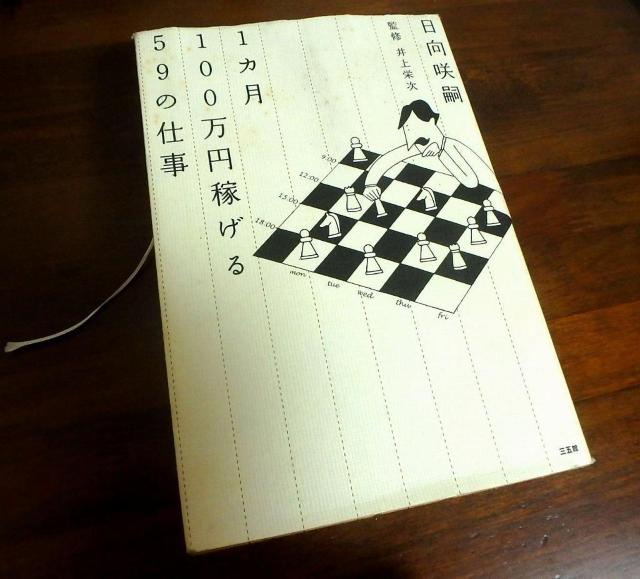 日向咲嗣
監修 井上栄次
1カ月
100万円稼げる
59の仕事
9:00
12:00
15:00
18:00
mon
tue
wed
thu
fri
三五館